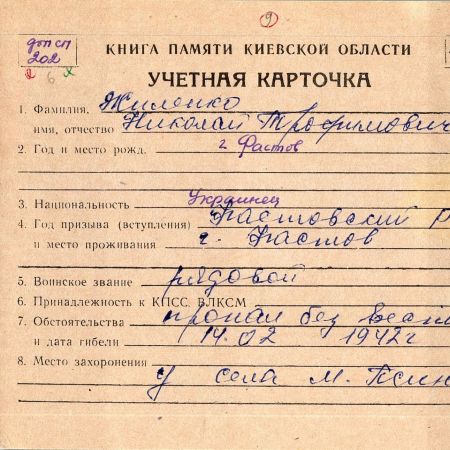 9
доп сп
202
2 6 x
КНИГА ПАМЯТИ КИЕВСКОЙ ОБЛАСТИ
УЧЕТНАЯ КАРТОЧКА
1. Фамилия, Жиленко
имя, отчество Николай Трофимович
2. Год и место рожд. г Фастов
3. Национальность Украинец
4. Год призыва (вступления) Фастовский Р
и место проживания г. Фастов
5. Воинское звание рядовой
6. Принадлежность к КПСС, ВЛКСМ
7. Обстоятельства пропал без вест
и дата гибели 14.02 1942г
8. Место захоронения
у села М.